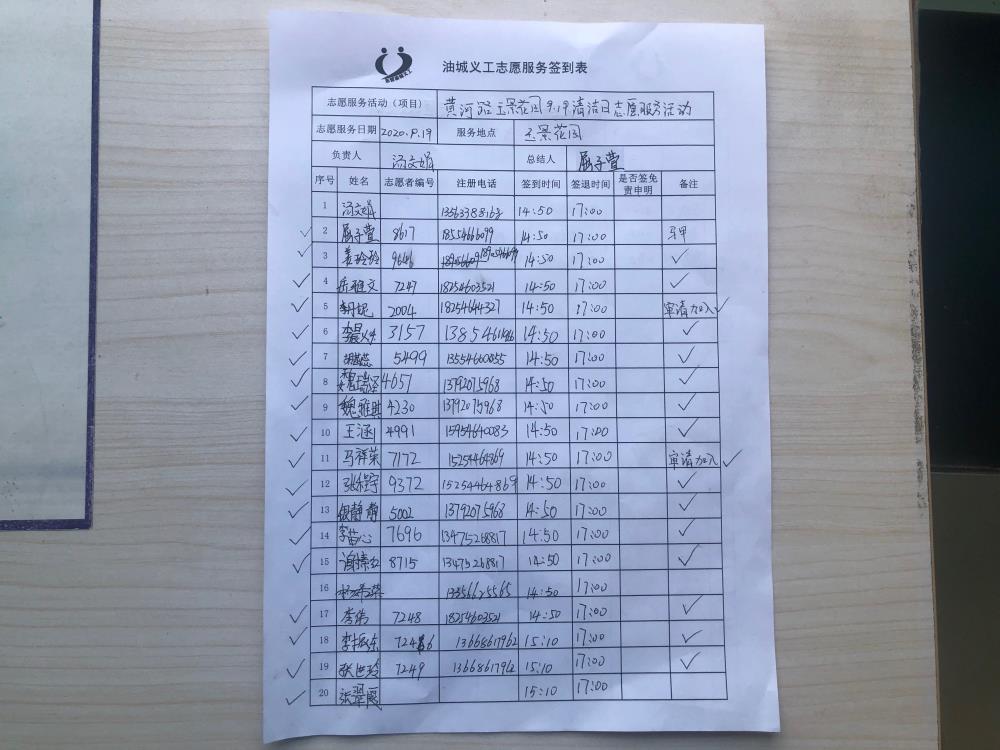 油城义工志愿服务签到表
志愿服务活动（项目） 黄河路玉景花园9.19清洁日志愿服务活动
志愿服务日期 2020.9.19 服务地点 玉景花园
负责人 汤文娟 总结人 屈子萱
序号 姓名 志愿者编号 注册电话 签到时间 签退时间 是否签免责申明 备注
1 汤文娟 14:50 17:00
2 屈子萱 8617 18554666099 14:50 17:00 马甲
3 姜玲玲 9646 14:50 17:00 ✓
4 7247 18254603521 14:50 17:00 ✓
5 2004 18254644327 14:50 17:00 审请加入 ✓
6 3157 14:50 17:00 ✓
7 5499 13554660055 14:50 17:00 ✓
8 4657 13792075968 14:50 17:00 ✓
9 魏雅琪 4230 13792075968 14:50 17:00 ✓
10 王涵 4991 15954640083 14:50 17:00 ✓
11 马祥荣 7172 15254464869 14:50 17:00 审请加入 ✓
12 9372 15254464869 14:50 17:00 ✓
13 5002 13792075968 14:50 17:00 ✓
14 李苗心 7696 13475268817 14:50 17:00 ✓
15 8715 13475268817 14:50 17:00 ✓
16 13356625565 14:50 17:00
17 李伟 7248 18254603521 14:50 17:00 ✓
18 李振东 13668617962 15:10 17:00 ✓
19 张世玲 7249 13668617962 15:10 17:00 ✓
20 张翠丽 15:10 17:00